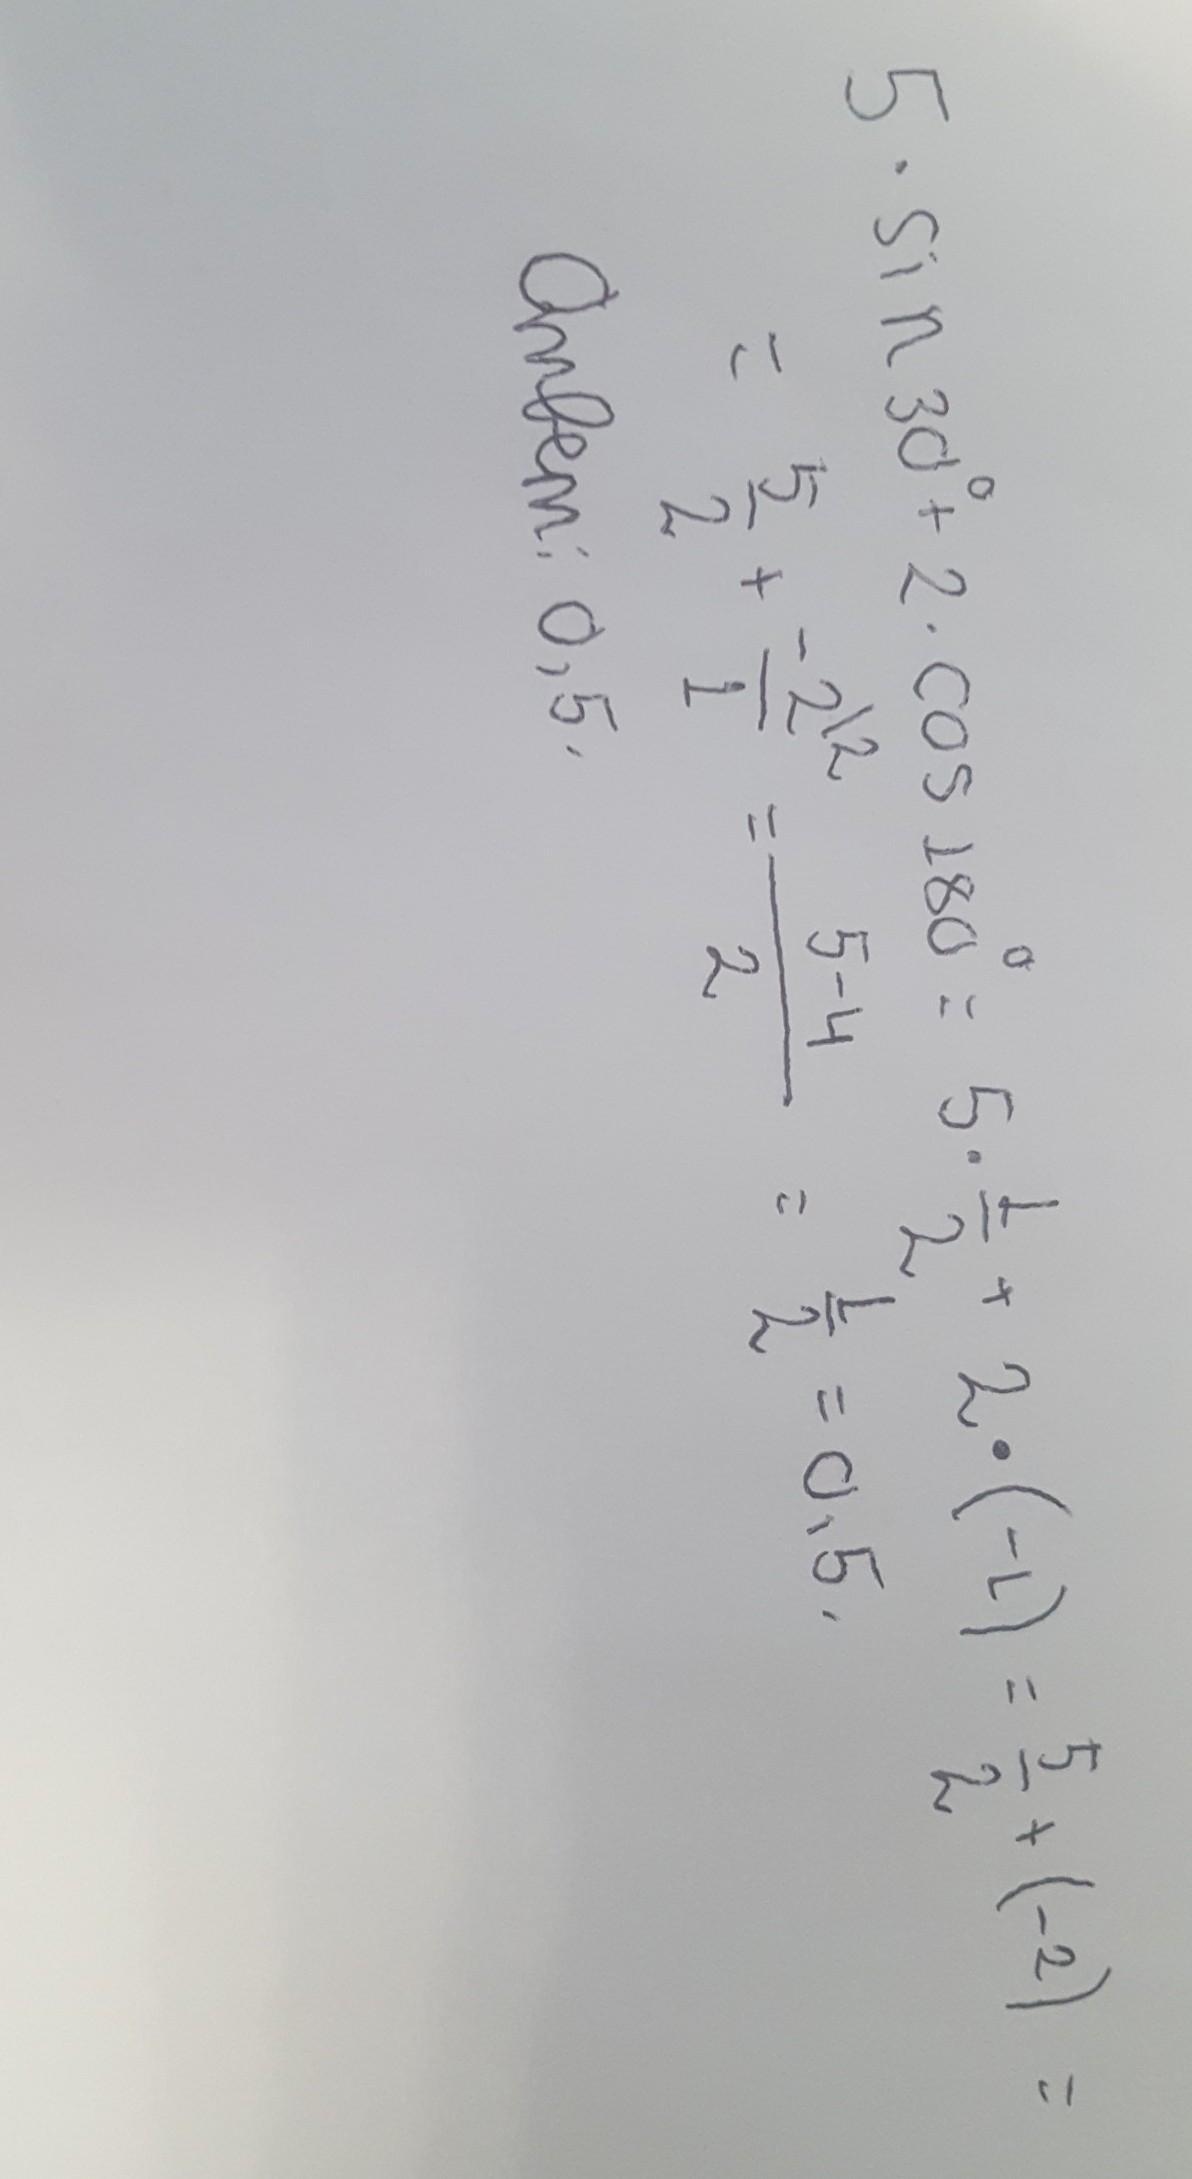 5 · sin 30° + 2 · cos 180° = 5 · 1/2 + 2 · (-1) = 5/2 + (-2) =
= 5/2 + -2\2/1 = 5-4/2 = 1/2 = 0,5.
Ответ: 0,5.